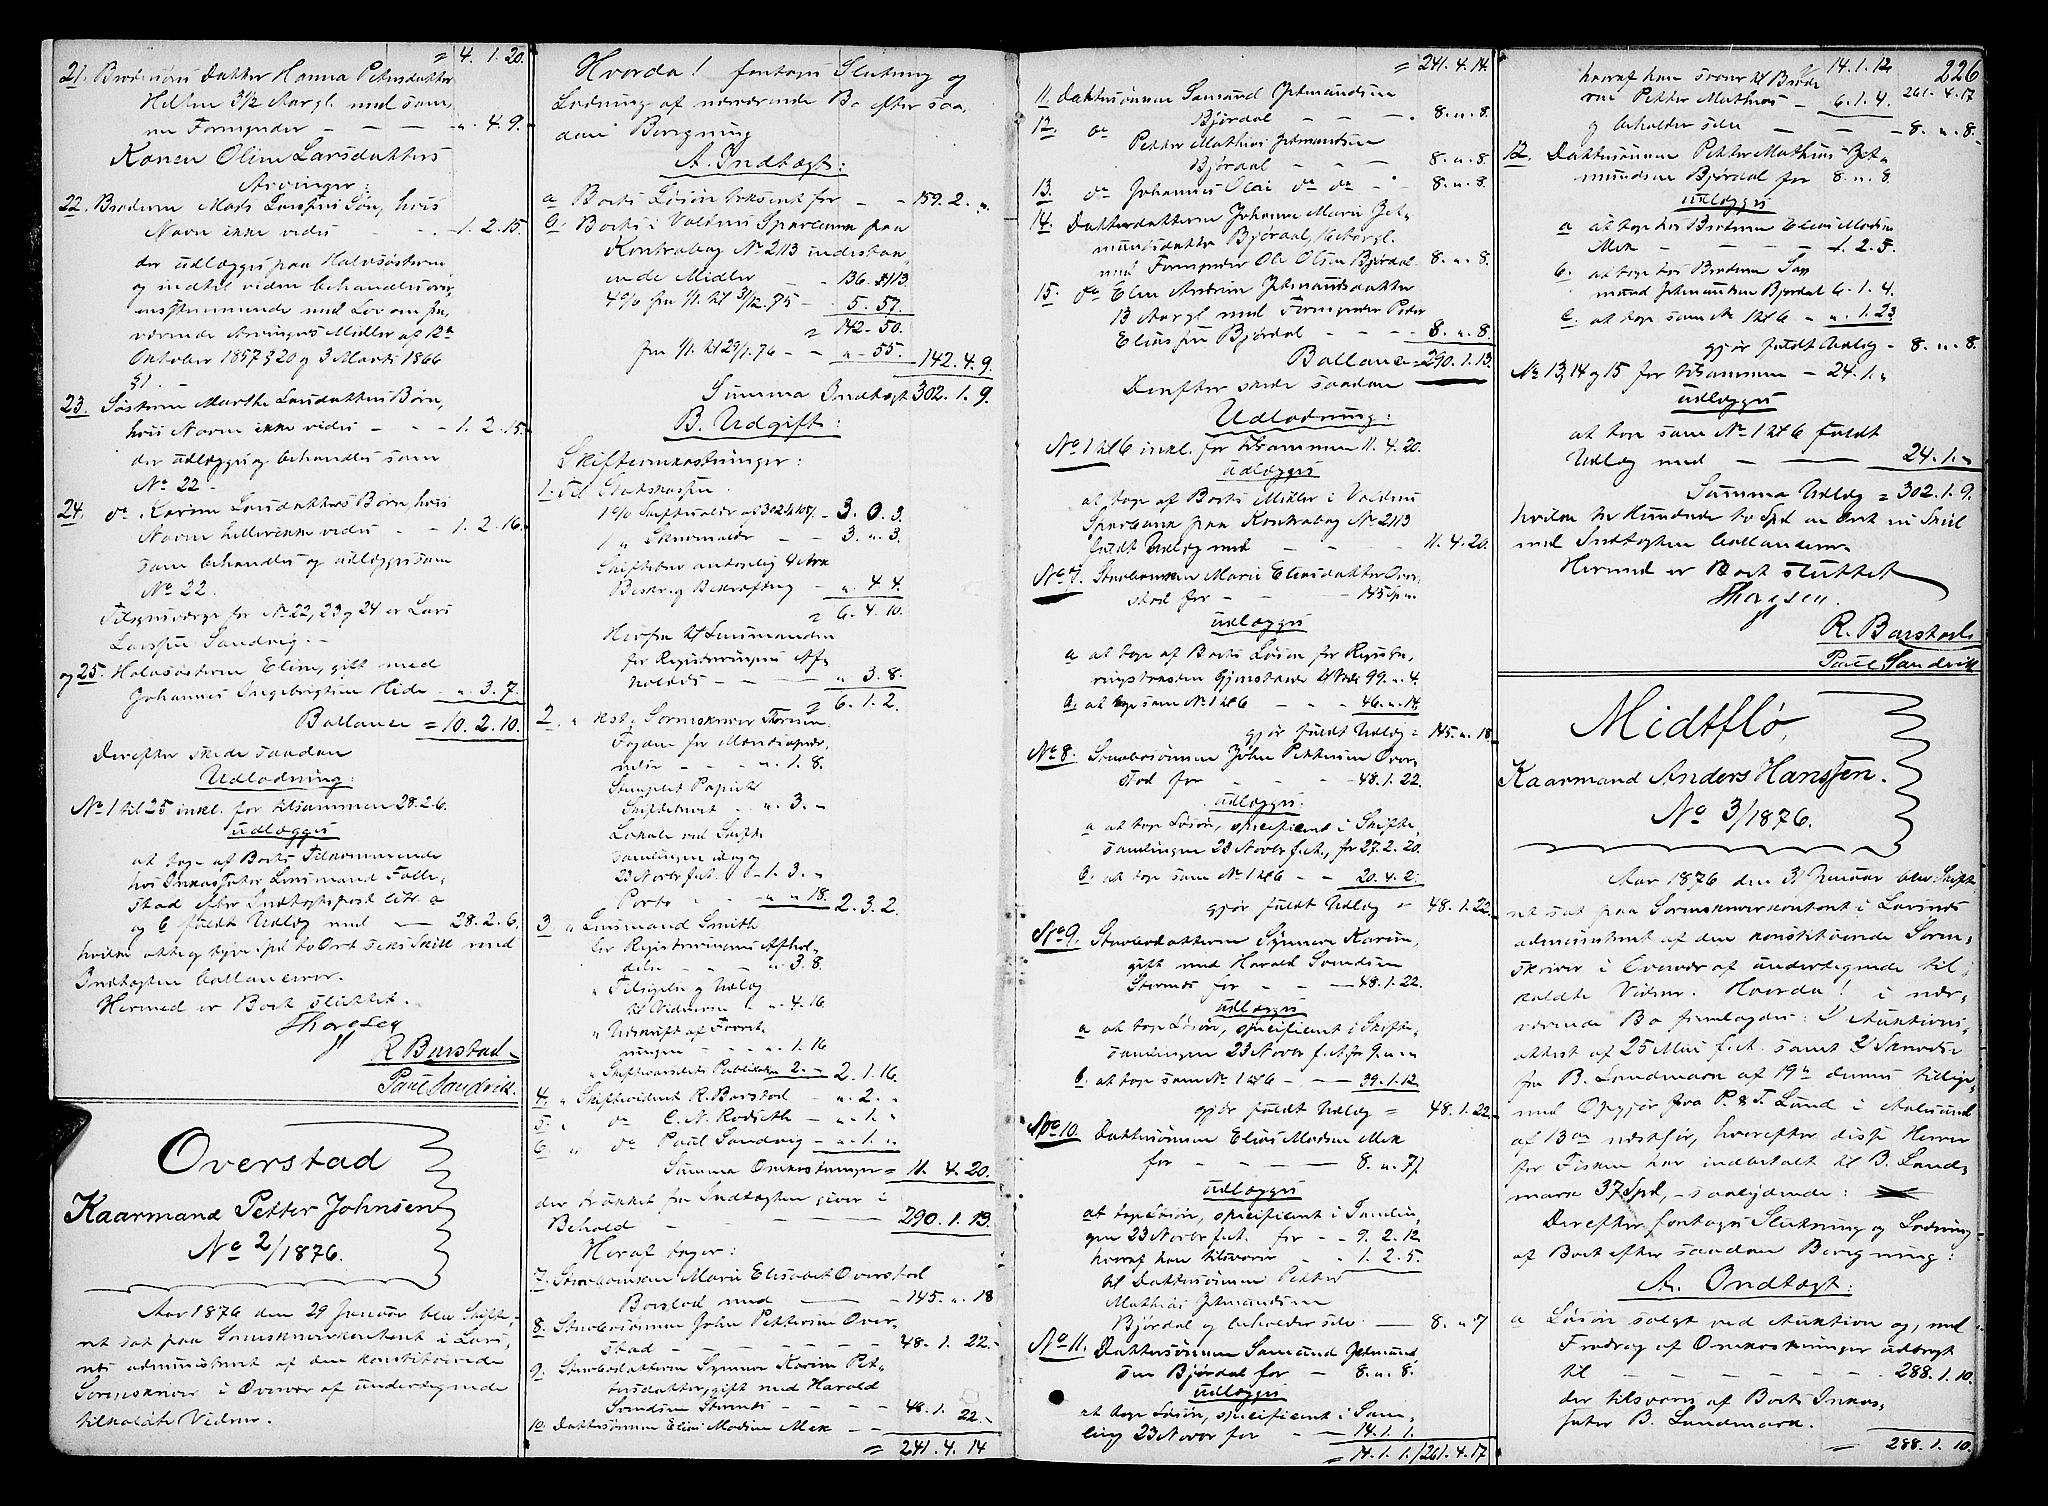 = 4. 1. 20.
21. Brodersøns Datter Hanna Petersdatter
Hellen 3½ Aargl. med sam-
me Formynder — — — „. 4. 9.
Konen Oline Larsdatters
Arvinger:
22. Broderen Mads Larsens Søn, hvis
Navn ikke vides — — 1. 2. 15.
der udlægges paa Halvsøsteren
og indtil videre behandles over-
ensstemmende med Lov om fra-
værende Arvingers Midler af 12te
Oktober 1857 § 20 og 3 Marts 1866
§ 1. —
23. Søsteren Marthe Larsdatters Børn,
hvis Navne ikke vides — — 1. 2. 15.
der udlægges og behandles som
No 22 —
24. do Karen Larsdatters Børn, hvis
Navne heller ikke vides — 1. 2. 16.
som behandles og udlægges som
No 22.
Tilsynsværge for No 22, 23 og 24 er Lars
Larsen Sandvig. —
og 25. Halvsøsteren Eline, gift med
Johannes Ingebrigtsen Hide — „. 3. 7.
Ballance = 10. 2. 10.
Derefter skede saadan
Udlodning:
No 1 til 25 inkl. for tilsammen 28. 2. 6.
udlægges
at tage af Boets Tilkommende
hos Inkassator Lensmand Falle-
stad efter Indtægtspost litr. a
og b fuldt Udlæg med — 28. 2. 6.
hvilke otte og tyve Spd to Ort sex Skill med
Indtægten ballancerer.
Hermed er Boet sluttet.
Thoresen
R Barstad
Paul Sandvik.
Overstad
Kaarmand Petter Johnsen
No 2/1876.
Aar 1876 den 29 Januar blev Skifte-
ret sat paa Sorenskriverkontoret i Lars-
nes administreret af den konstituerede
Sorenskriver i Overvær af undertegnede
tilkaldte Vidner.
Hvorda! foretoges Slutning og
Lodning af nærværende Bo efter saa-
dan Beregning
A. Indtægt:
a Boets Løsøre taxeret for — — 159. 2. „
b. Boets i Voldens Sparebank paa
Kontrabog No 2113 indestaa-
ende Midler — — 136. 113.
4% fra 1/1 til 31/12. 75 — 5. 57.
= 142 - 50.
fra 1/1 til 29/1. 76 — — „ - 55. 142. 4. 9.
Summa Indtægt 302. 1. 9.
B. Udgift:
Skifteomkostninger:
1. Til Statskassen
1% Skifteafdr. af 302 3. 0. 3.
1 „ Skrivesaldr — — 3. „. 3.
Beskr. og Bekræftning — „. 4 4.
= 6. 4. 10.
Herfra til Lensmanden
for Registreringens Af-
holdelse — — — „ 3. 8.
= 6. 1. 2.
2. „ kst. Sorenskriver Thoresen
„. 1. 8.
Stemplet Papir til
Skiftebrevet — „. 3. „
Lokale ved Skifte-
samlingen idag og
23 Novbr f.A. 1. 3. „
Porto — „ „ 18. 2. 3. 2.
3 „ Lensmand Smith
for Registreringens Afhol-
delse — — „. 3. 8.
„ Tilsigelse og Udlæg
til Vidnerne „. 4. 16
„ Udskrift af Forret-
ningen — — „. 1. 16
2. „ 2. 1. 16.
4. „ Skiftevidnet R. Barstad — „. 2. „
5. „ do C. N. Rodseth — „. 1. „
6. „ do Paul Sandvig — „. 1. „
Summa Omkostninger = 11. 4. 20.
der trukket fra Indtægten giver i
Behold — — — 290. 1. 13.
Heraf tager:
7. Sterboenken Marie Elisabet Overstad
Boslod med — 145. „ 18
8. Sterbosønnen John Pettersen Over-
stad — — — 48. 1. 22.
9. Sterbodatteren Synnøve Karine Pet-
tersdatter, gift med Harald
Svendsen Storenes — — 48. 1. 22. -
10. Dattersønnen Elias Madsen Mek — —
= 241. 4. 14
= 241. 4. 14.
11. Dattersønnen Samund Jetmundsen
Bjørdal — — 8. „. 8.
12. do Petter Mathias Jetmundsen
Bjørdal — — 8. „. 8
13. do Johannes Olai do do — 8. „. 8.
14. Datterdatteren Johanne Marie Jet-
mundsdatter Bjørdal, Aargl.
med Formynder Ole Olsen Bjørdal 8. „. 8.
15. do Eline Jetmundsdatter
13 Aargl. med Formynder Peder
Eliassen Bjørdal — — — 8. „. 8.
Ballance = 290. 1. 13.
Derefter skede saadan
Udlodning:
No 1 til 6 inkl. for tilsammen 11. 4. 20.
udlægges
at tage af Boets Midler i Voldens
Sparebank paa Kontrabog No 2113
fuldt Udlæg med — — — 11. 4. 20.
No 7. Sterboenken Marie Eliasdatter Over-
stad for — — — 145 Spd „.
udlægges
a at tage af Boets Løsøre for Registre-
ringstaksten Gjenstande til Værdi 99. „. 4.
b. at tage som No 1 til 6 — — 46. „. 14.
gjør fuldt Udlæg = 145. „. 18
No 8. Sterbosønnen John Pettersen Over-
stad for — — — 48. 1. 22.
udlægges:
a at tage Løsøre, specificeret i Skifte-
samlingen 23 Novbr f.A., for 27. 2. 20.
b. at tage som No 1 til 6 — — 20. 4. 2.
gjør fuldt Udlæg = 48. 1. 22.
No 9. Sterbodatteren Synnøve Karine,
gift med Harald Svendsen
Storenes for — — — 48. 1. 22.
udlægges
a at tage Løsøre, specificeret i Skifte-
samlingen 23 Novbr f.A. for 9. „. „
b. at tage som No 1 til 6 — — 39. 1. 12.
gjør fuldt Udlæg = 48. 1. 22.
No 10. Dattersønnen Elias Madsen Mek
for — — — 8. „. 7
udlægges
at tage Løsøre, specificeret i Samlin-
gen 23 Novbr f.A. for — 9. 2. 12.
hvoraf han tilsvarer — 1. 2. 5.
til Dattersønnen Petter
Mathias Jetmundsen
Bjørdal og beholder selv — 8. „. 7
No 11. Dattersønnen Samund Jetmund-
sen Bjørdal for — 8. „. 8.
udlægges
at tage Løsøre, specificeret i Sam-
ling 23 Novbr for — — 14. 1. 1.
= 14. 1. 1. / 261. 4. 17
226
14. 1. 12 261. 4. 17
hvoraf han svarer til Brode-
ren Petter Mathias — 6. 1. 4.
og beholder selv — — — 8. „. 8.
12. Dattersønnen Petter Mathias Jet-
mundsen Bjørdal for 8. „. 8.
udlægges
a at tage hos Broderen Elias Madsen
Mek — — — 1. 2. 5.
b. at tage hos Broderen Sa-
mund Jetmundsen Bjørdal 6. 1. 4.
c. at tage som No 1 til 6 — „. 1. 23
gjør fuldt Udlæg — 8. „. 8.
No 13, 14 og 15 for tilsammen — 24. 1. „
udlægges
at tage som No 1 til 6 fuldt
Udlæg med — — 24. 1. „
Summa Udlæg = 302. 1. 9.
hvilke tre Hundrede to Spd en Ort ni Skill
med Indtægten ballancerer.
Hermed er Boet sluttet
Thoresen.
R. Barstad
Paul Sandvik
Midtflø,
Kaarmand Anders Hanssen.
No 3/1876.
Aar 1876 den 31 Januar blev Skifte-
ret sat paa Sorenskriverkontoret i Larsnes
administreret af den konstituerede Soren-
skriver i Overvær af undertegnede til-
kaldte Vidner. Hvorda! i nær-
værende Bo fremlagdes: 1/ Auktions-
attest af 25 Mai f.A. samt 2/ Skrivelse
fra B. Landmark af 19de dennes tillige-
med Opgjør fra P. & T. Lund i Aalesund
af 13de næstfør, hvorefter disse Herrer
for Fisken har indbetalt til B. Land-
mark 37 Spd, — saalydende:
Derefter foretoges Slutning og Lodning
af Boet efter saadan Beregning:
A. Indtægt:
a Løsøre solgt ved Auktion og, med
Fradrag af Omkostninger udbragt
til — — — — — 288. 1. 10.
der tilsvares af Boets Inkas-
sator B. Landmark.
= 288. 1. 10.